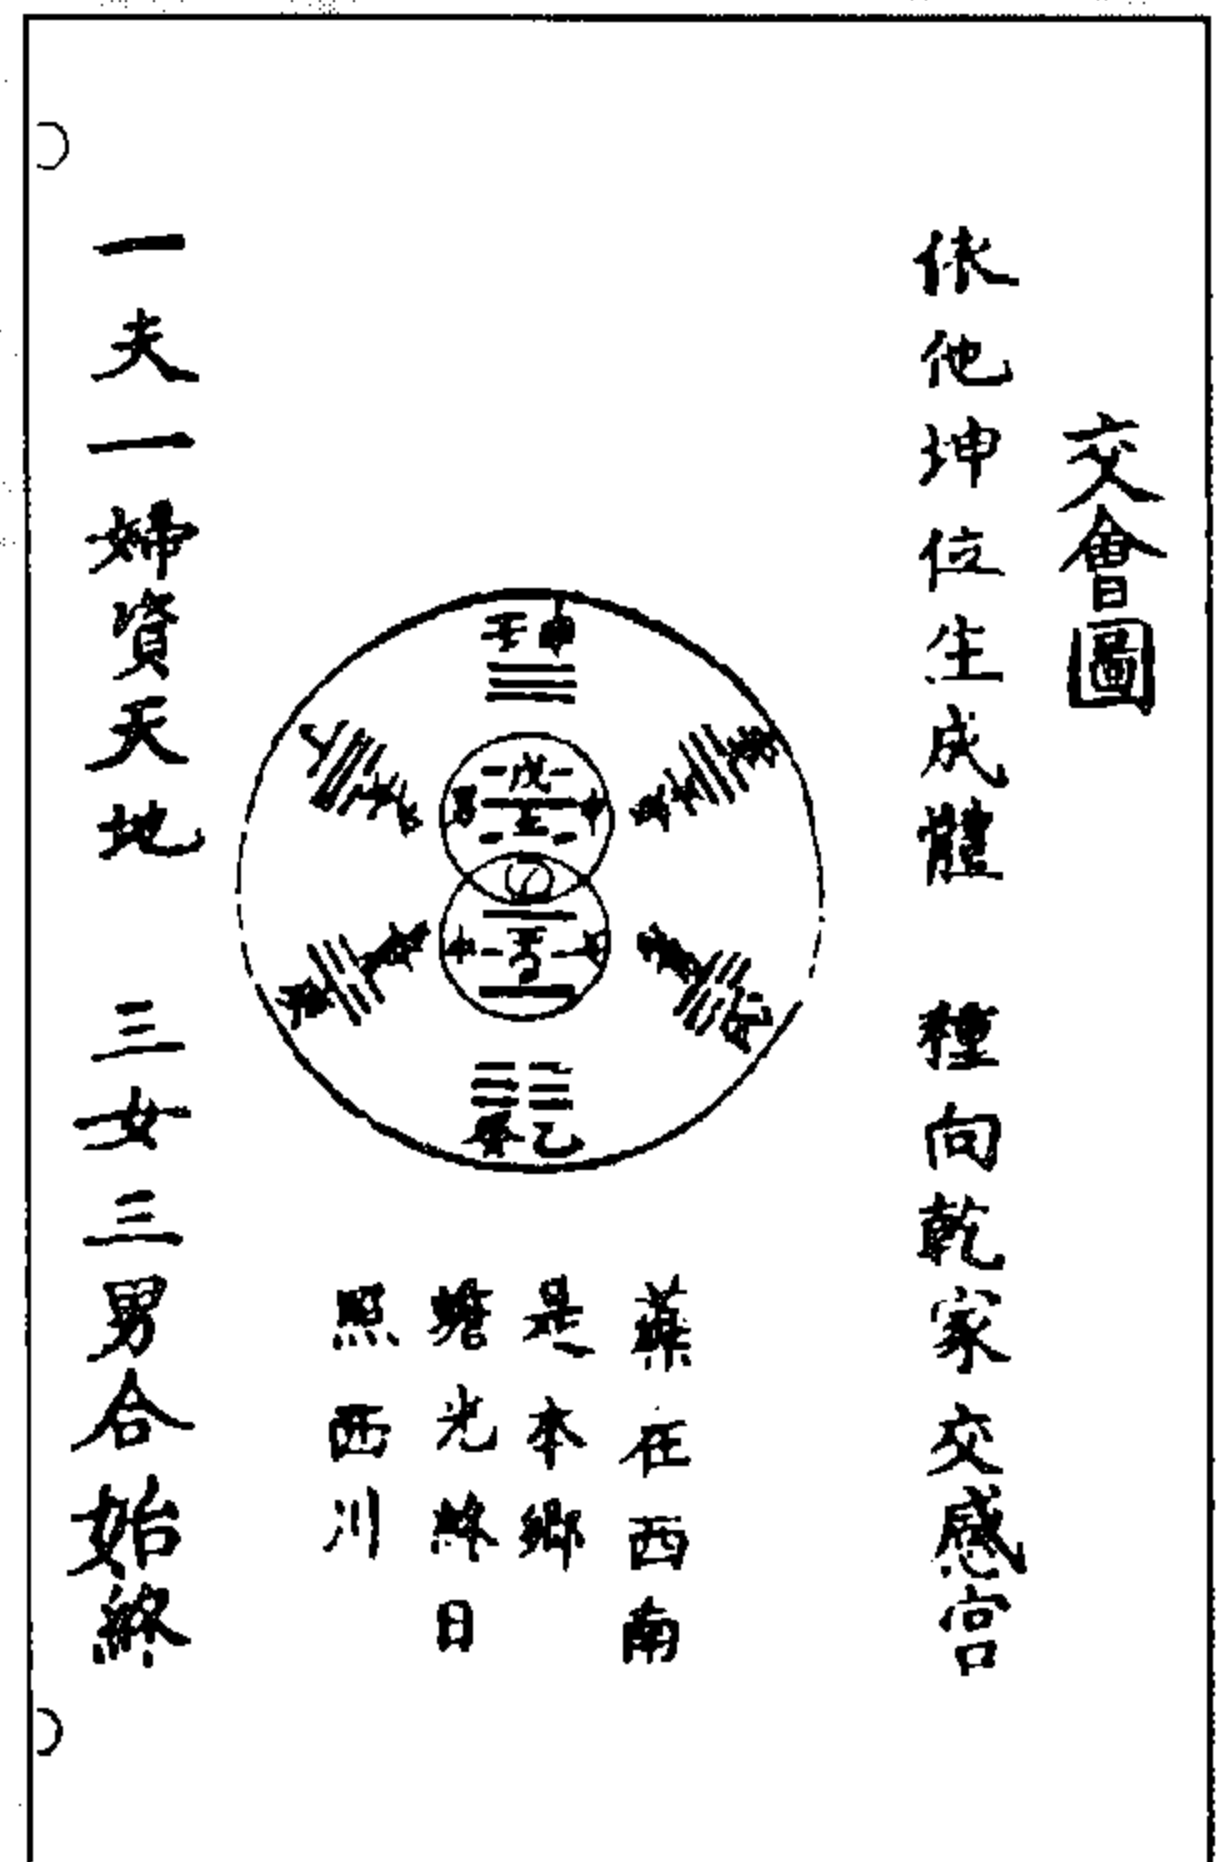 交會圖
依他坤位生成體 種向乾家交感宮
壬甲
戊
癸乙
藥在西南
是本鄉
蟾光終日
照西川
一夫一婦資天地 三女三男合始終